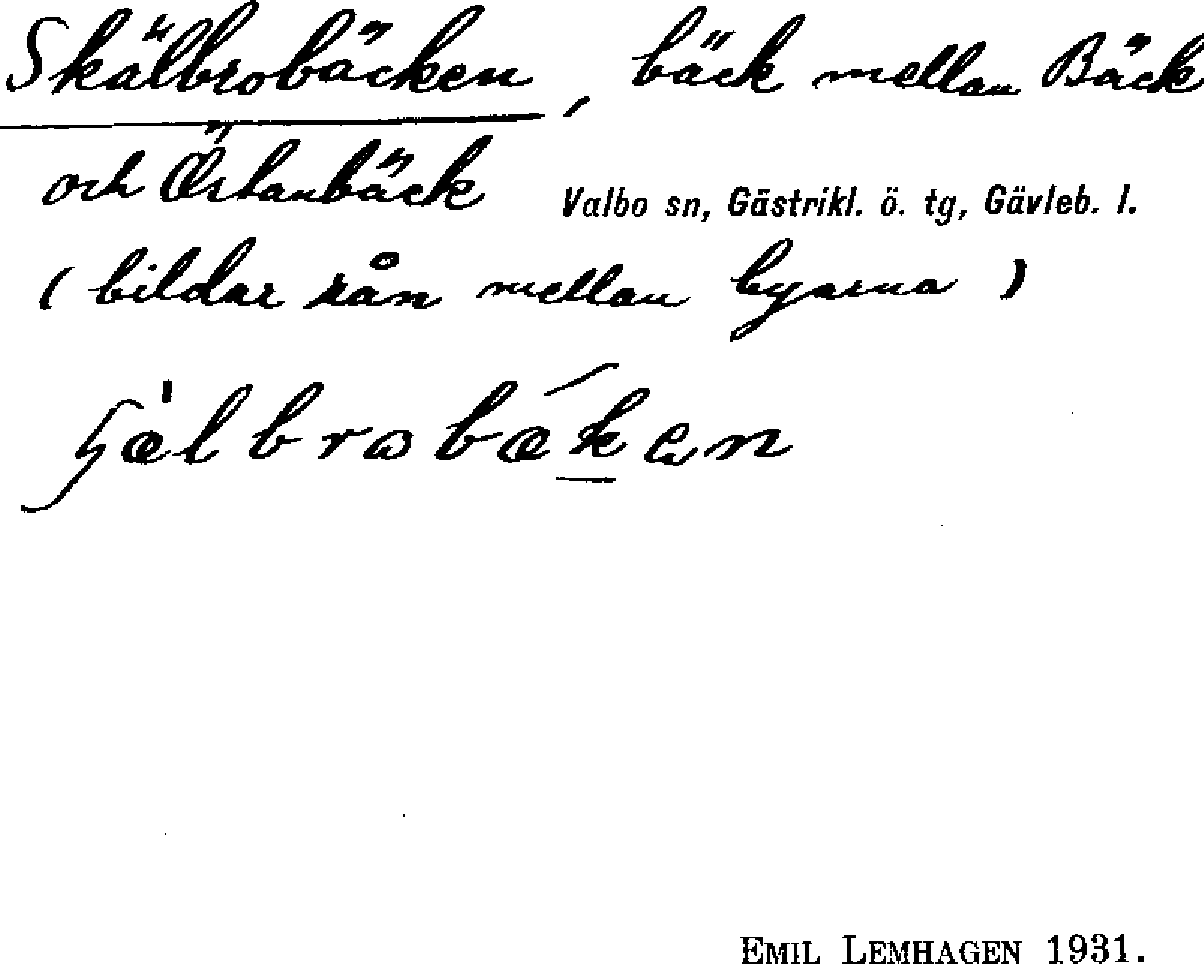 Skälbrobäcken, bäck mellan Bäck
och Östanbäck Valbo sn, Gästrikl. ö. tg, Gävleb. l.
(bildar rån mellan byarna)
EMIL LEMHAGEN 1931.